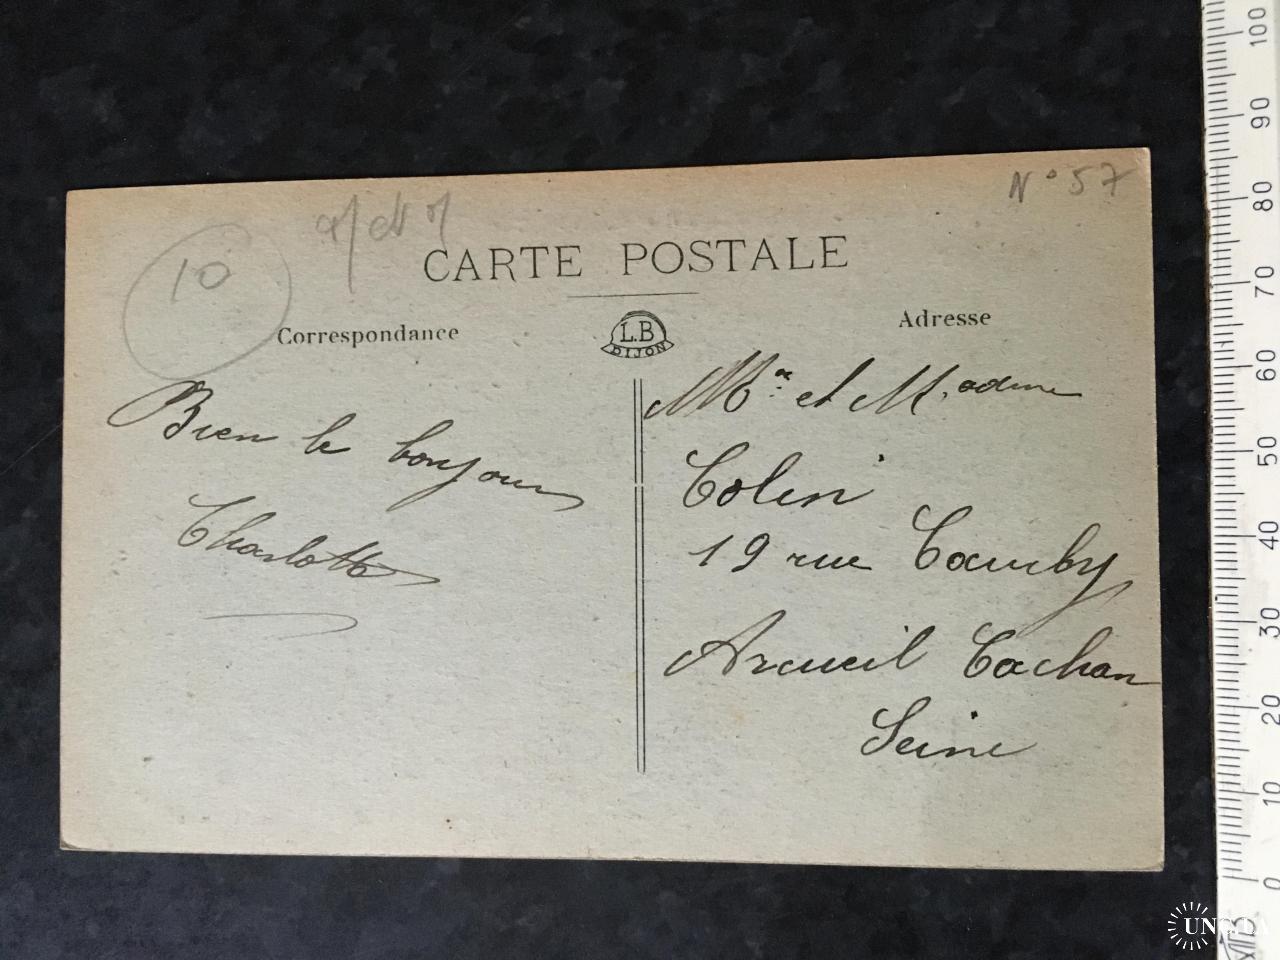 N° 57
10
CARTE POSTALE
Correspondance
L.B
DIJON
Adresse
Bien le bonjour
Charlotte
Mr et Madame
Colin
19 rue
Arcueil Cachan
Seine
100
90
80
70
60
50
40
30
20
10
0